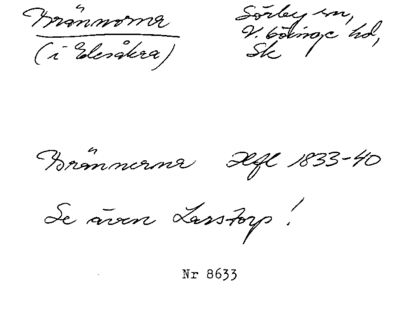 Brännorna Sörby sn,
(i Edesåkra) V. Göinge hd,
Sk
Brännerna Hfl 1833-40
Se även Larstorp!
Nr 8633